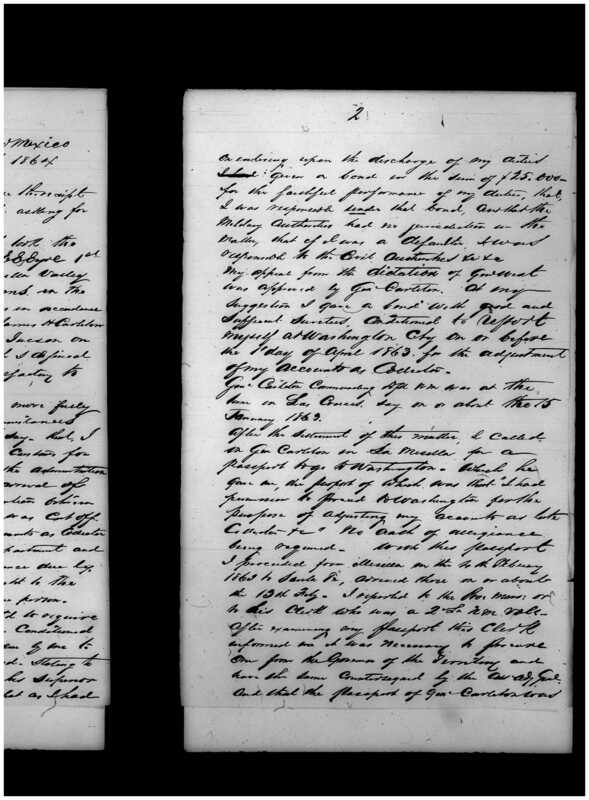 Mexico
1864
the receipt
asking for
with the
1st
Valley
in the
in accordance
James H Carleton
Tucson on
I defined
to
more fully
circumstances
say. that, I
Customs for
the administration
removal of
was Cut off
as Collector
Department and
due by
to the
person.
to require
Conditional
by me to
Stating to
his Superior
as I had
2
On entering upon the discharge of my duties
I had given a bond in the sum of $25.000-
for the faithful performance of my duties, that,
I was responsible under that bond, And that the
Military Authorities had no jurisdiction in the
Matter, that if I was a defaulter, I was
responsible to the Civil Authorities &c &c
My appeal from the dictation of Genl West
was approved by Genl Carleton. At my
Suggestion I gave a bond with good and
Sufficient Sureties, Conditioned to report
myself at Washington City on or before
the 1st day of April 1863. for the adjustment
of my accounts as Collector.
Genl Carleton Commanding Dpt NM was at the
time in Las Cruces, say on or about the 15
January 1863.
After the settlement of this matter, I called
on Genl Carleton in La Mesilla for a
passport to go to Washington - Which he
gave me, the purport of which was that I had
permission to proceed to Washington for the
purpose of adjusting my accounts as late
Collector &c" No oath of allegiance
being required - With this passport
I proceeded from Mesilla on the 4th February
1863 to Santa Fe, arrived there on or about
the 13th Feby - I reported to the Pro. Mars: or
to his Clerk who was a 2nd Lt N.M. Vols -
After examining my passport this Clerk
informed me it was necessary to procure
One from the Governor of the Territory and
have the same Countersigned by the Adj. Genl.
And that the passport of Genl Carleton was